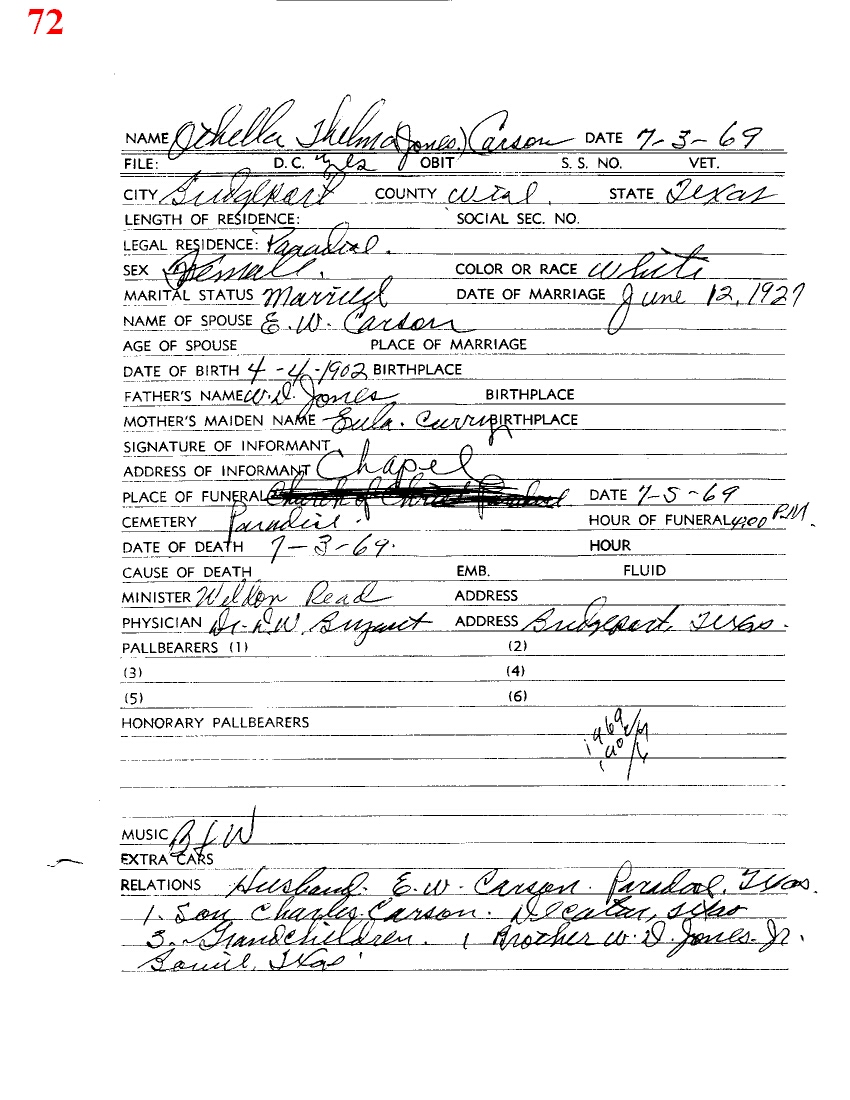 72
NAME Othella Thelma (Jones) Carson DATE 7-3-69
FILE: D.C. yes OBIT S. S. NO. VET.
CITY Bridgeport COUNTY Wise STATE Texas
LENGTH OF RESIDENCE: SOCIAL SEC. NO.
LEGAL RESIDENCE: Paradise.
SEX Female. COLOR OR RACE White
MARITAL STATUS Married DATE OF MARRIAGE June 12, 1927
NAME OF SPOUSE E. W. Carson
AGE OF SPOUSE PLACE OF MARRIAGE
DATE OF BIRTH 4-4-1902 BIRTHPLACE
FATHER'S NAME W. D. Jones BIRTHPLACE
MOTHER'S MAIDEN NAME Eula. Curry BIRTHPLACE
SIGNATURE OF INFORMANT
ADDRESS OF INFORMANT Chapel
PLACE OF FUNERAL Church of Christ DATE 7-5-69
CEMETERY Paradise. HOUR OF FUNERAL 4:00 P.M.
DATE OF DEATH 7-3-69. HOUR
CAUSE OF DEATH EMB. FLUID
MINISTER Weldon Read ADDRESS
PHYSICIAN Dr. D. W. Bryant ADDRESS Bridgeport, Texas.
PALLBEARERS (1) (2)
(3) (4)
(5) (6)
HONORARY PALLBEARERS
1969
MUSIC
EXTRA CARS
RELATIONS Husband. E. W. Carson. Paradise, Texas.
1. Son Charles Carson. Decatur, Texas
3. Grandchildren. 1 Brother W. D. Jones. Jr.
Texas